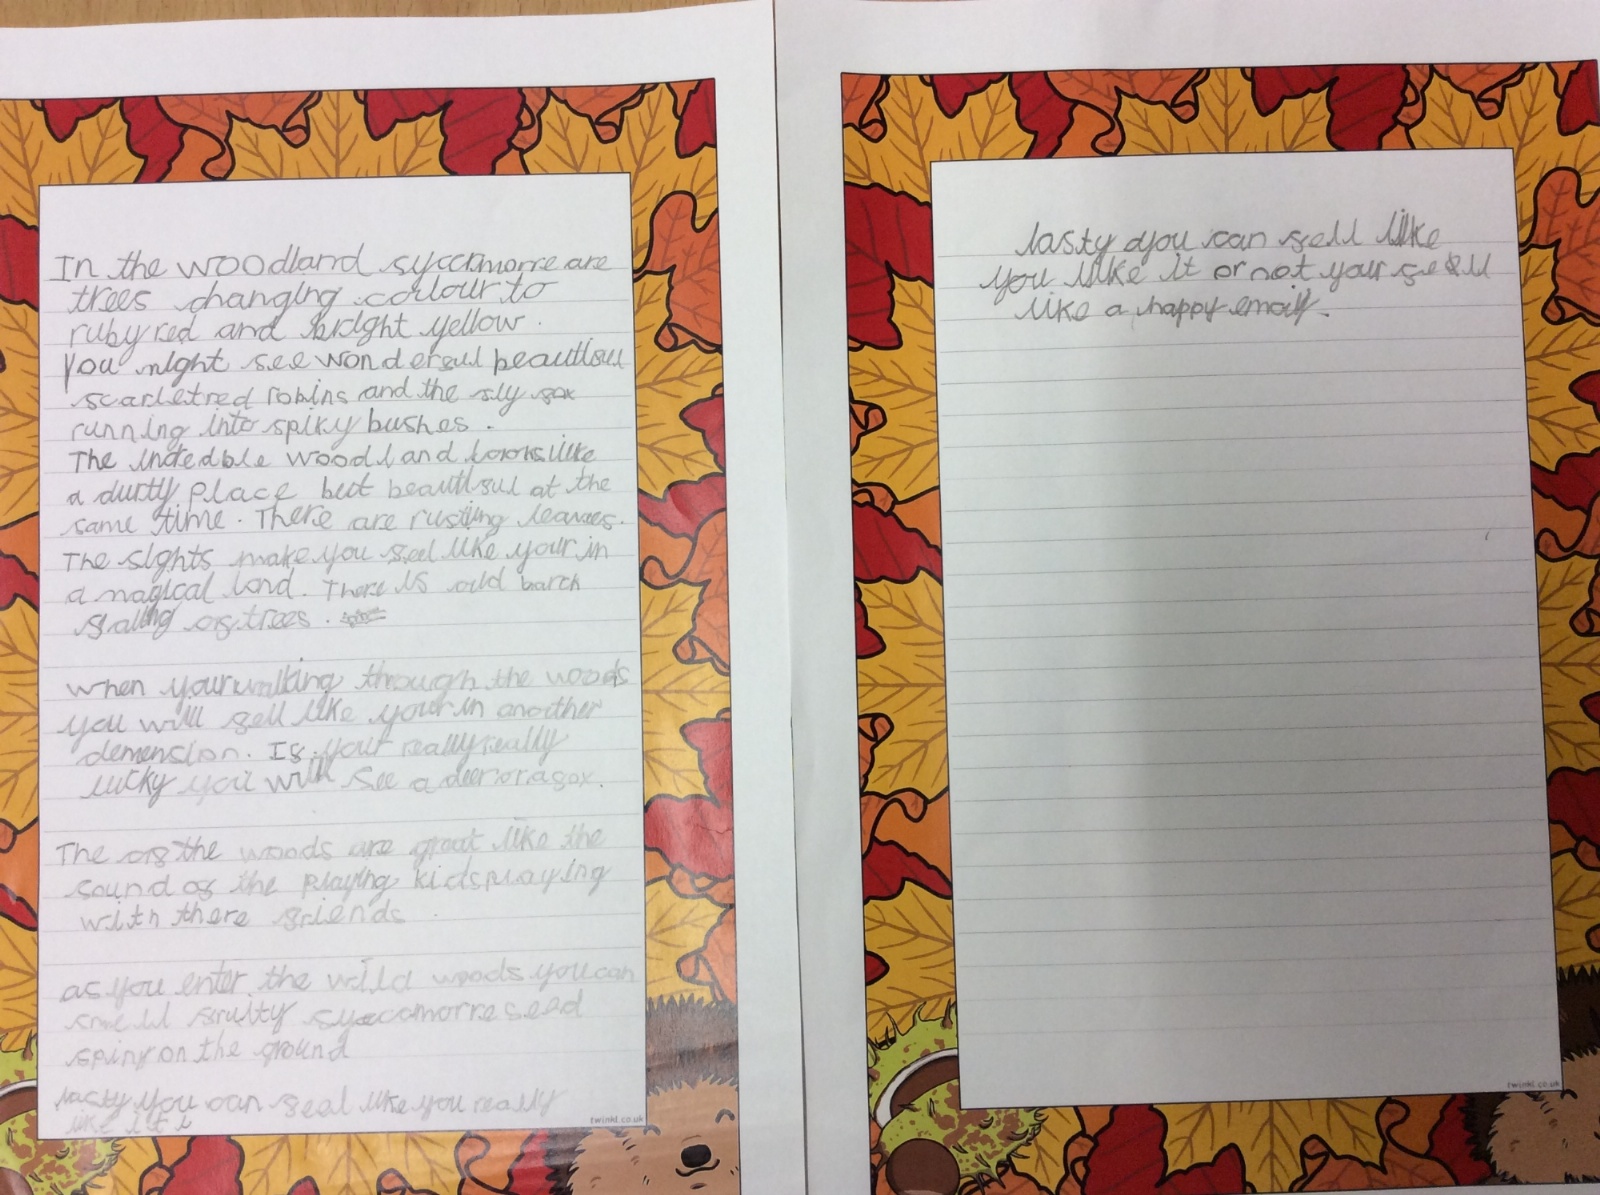 In the woodland syccamorre are
trees changing colour to
ruby red and bright yellow.
you might see wonderful beautiful
scarlet red robins and the sly fox
running into spiky bushes.
The incredble woodland looks like
a durty place but beautiful at the
same time. There are rustling leaves.
The sights make you feel like your in
a magical land. There is old barck
falling of trees.
when your walking through the woods
you will fell like your in another
demension. If your really really
lucky you will see a deer or a fox.
The of the woods are great like the
sound of the playing kids playing
with there friends
as you enter the wild woods you can
smell fruity syccomorre seed
spiny on the ground
lasty you can feal like you really
like it
twinkl.co.uk
lasty you can fell like
you like it or not your fell
like a happy emoji.
twinkl.co.uk